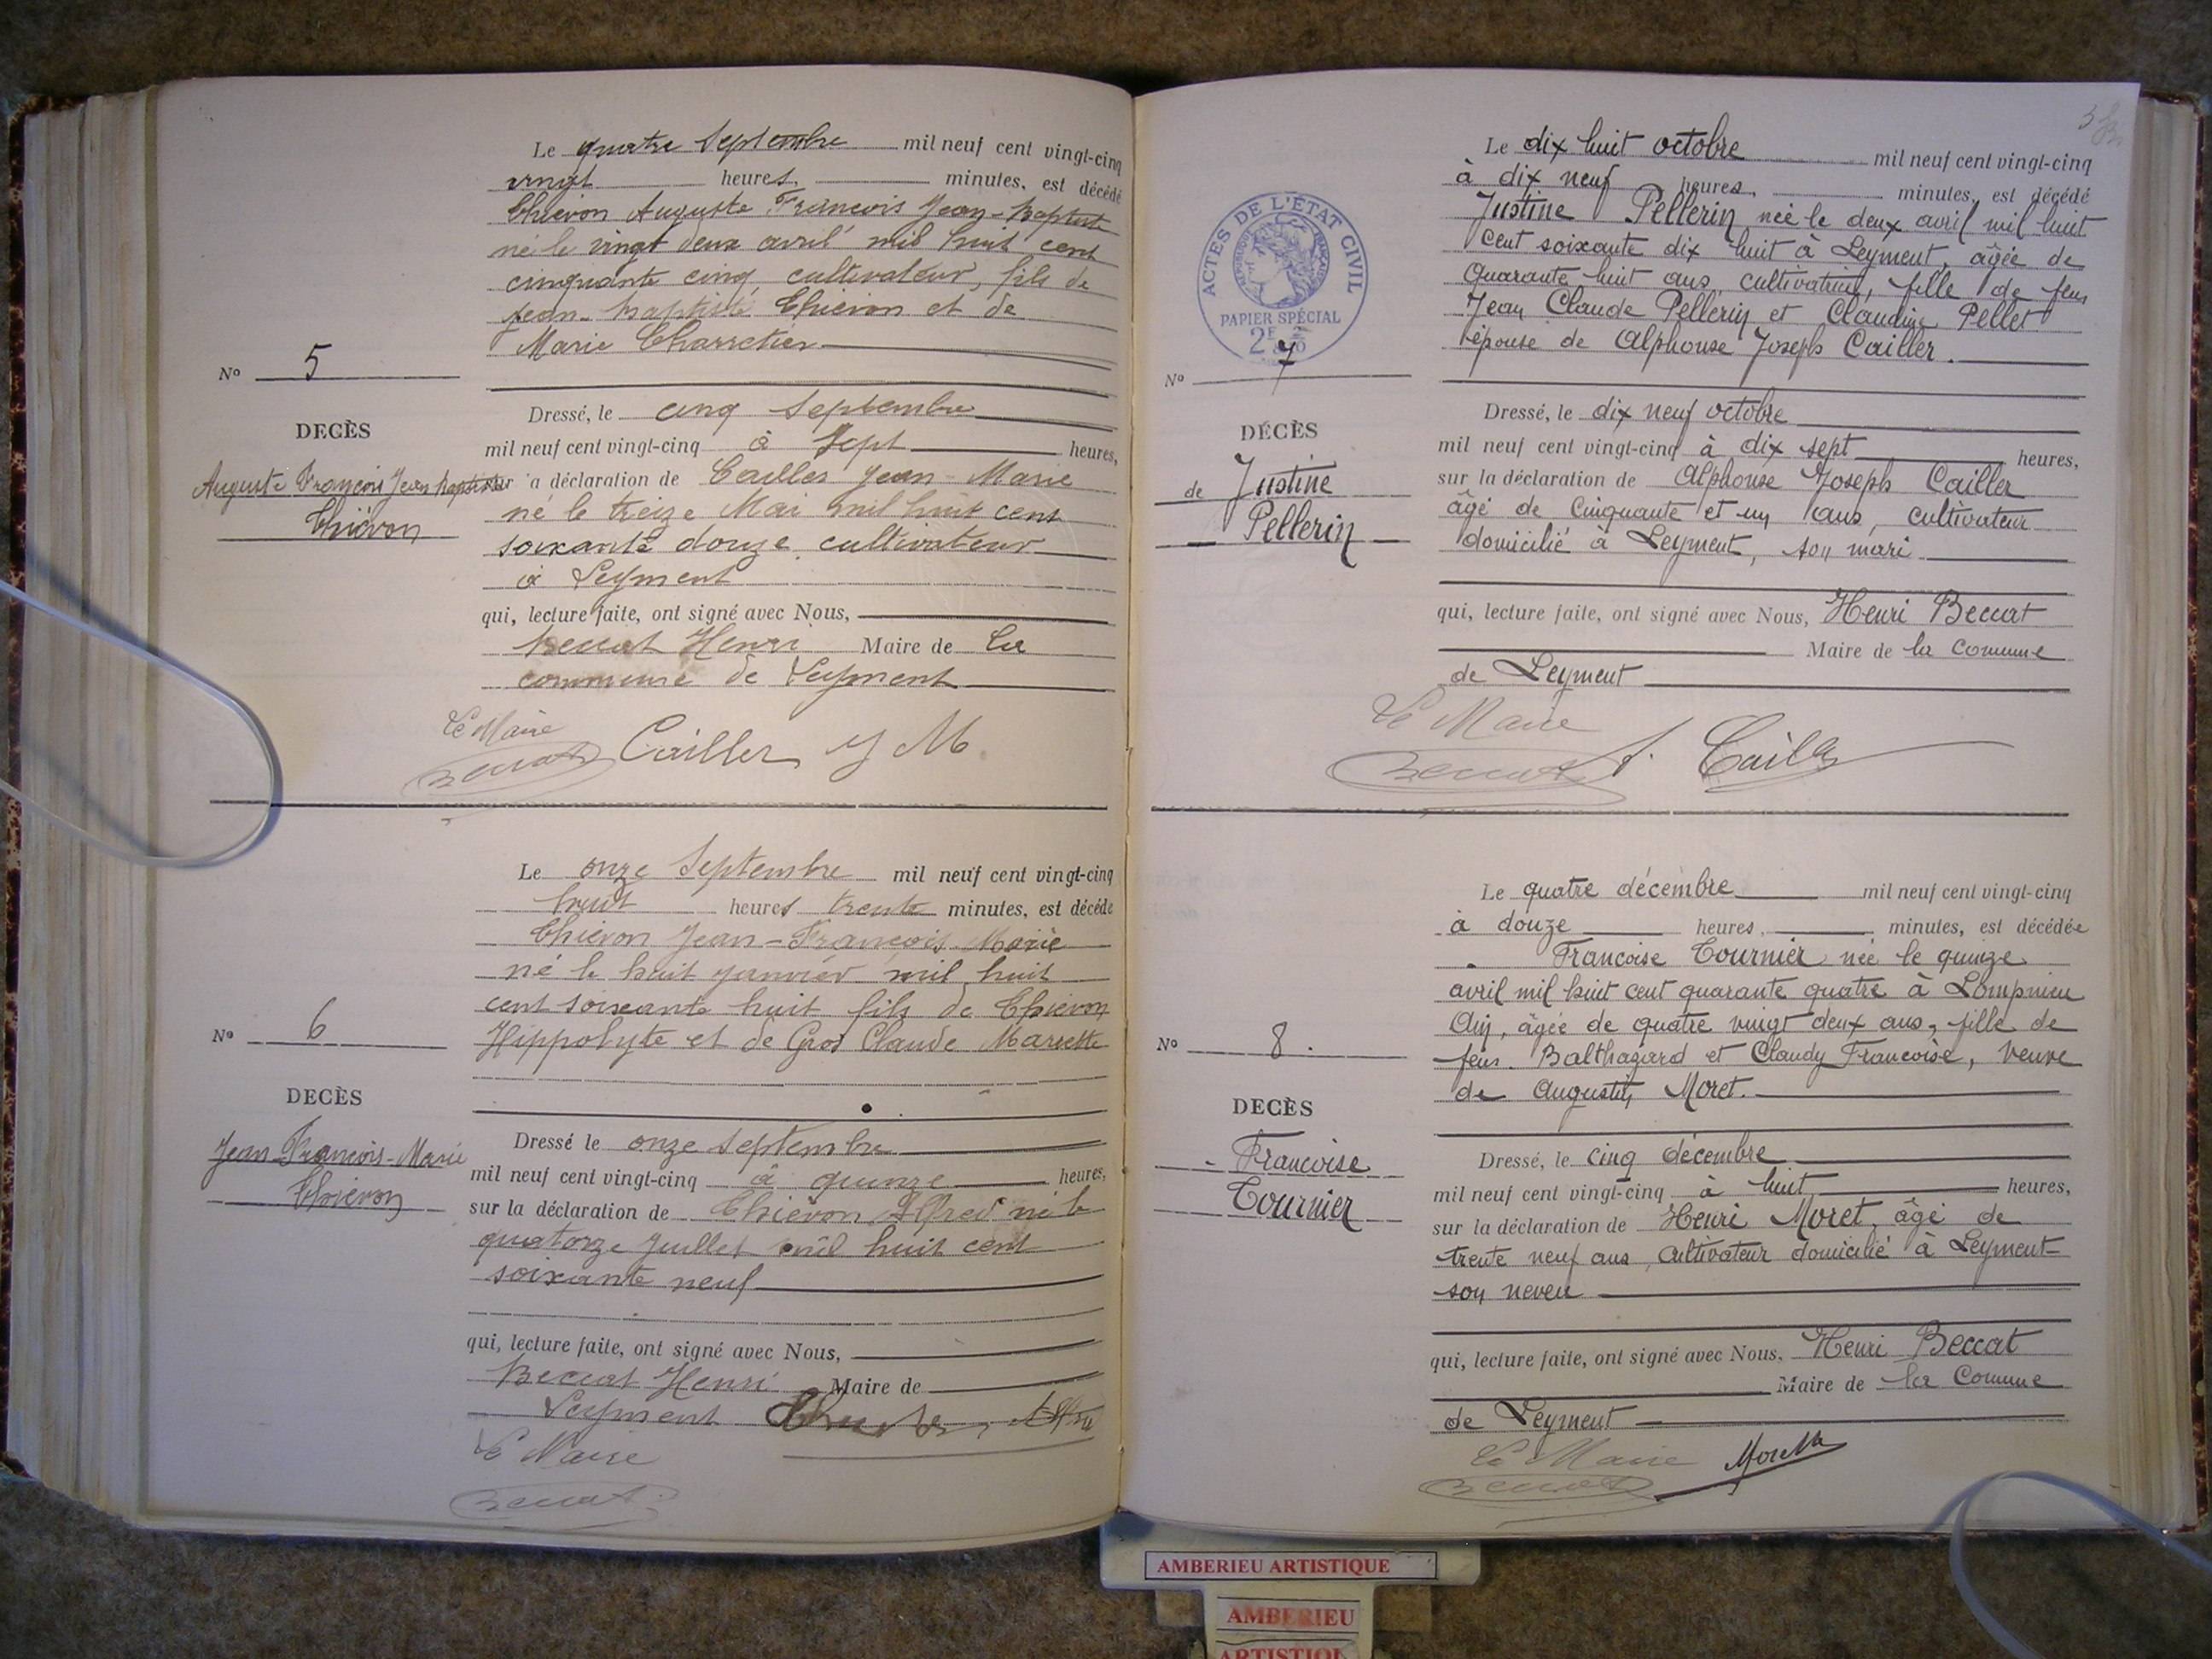 Le quatre Septembre mil neuf cent vingt-cinq
vingt heures, minutes, est décédé
Thiévon Auguste François Jean-Baptiste
né le vingt deux avril mil huit cent
cinquante cinq, cultivateur, fils de
Jean-Baptiste Thiévon et de
Marie Charretier
No 5
DECÈS
Auguste François Jean Baptiste
Thiévon
Dressé, le cinq Septembre
mil neuf cent vingt-cinq à Sept heures,
sur la déclaration de Cailler Jean-Marie
né le treize Mai mil huit cent
soixante douze cultivateur
à Leyment
qui, lecture faite, ont signé avec Nous,
Beccat Henri Maire de la
commune de Leyment
Le Maire
Beccat Cailler J M
Le onze Septembre mil neuf cent vingt-cinq
huit heures trente minutes, est décédé
Thiévon Jean-François Marie
né le huit janvier mil huit
cent soixante huit fils de Thiévon
Hippolyte et de Gros Claude Mariette
No 6
DECÈS
Jean François-Marie
Thiévon
Dressé le onze Septembre
mil neuf cent vingt-cinq à quinze heures,
sur la déclaration de Thiévon Alfred né le
quatorze juillet mil huit cent
soixante neuf
qui, lecture faite, ont signé avec Nous,
Beccat Henri Maire de
Leyment
Le Maire
Beccat
Le dix huit octobre mil neuf cent vingt-cinq
à dix neuf heures, minutes, est décédé
Justine Pellerin née le deux avril mil huit
cent soixante dix huit à Leyment, âgée de
quarante huit ans, cultivatrice, fille de feus
Jean Claude Pellerin et Claudine Pellet
épouse de Alphonse Joseph Cailler.
ACTES DE L'ÉTAT CIVIL
RÉPUBLIQUE FRANÇAISE
PAPIER SPÉCIAL
No 7
DÉCÈS
de Justine
Pellerin
Dressé, le dix neuf octobre
mil neuf cent vingt-cinq à dix sept heures,
sur la déclaration de Alphonse Joseph Cailler
âgé de Cinquante et un ans, cultivateur
domicilié à Leyment, son mari
qui, lecture faite, ont signé avec Nous, Henri Beccat
Maire de la Commune
de Leyment
Le Maire
Beccat A. Cailler
Le quatre décembre mil neuf cent vingt-cinq
à douze heures, minutes, est décédée
Francoise Tournier née le quinze
avril mil huit cent quarante quatre à Lompnieu
Ain, âgée de quatre vingt deux ans, fille de
feus Balthazard et Claudy Francoise, veuve
de Augustin Moret.
No 8.
DECÈS
Francoise
Tournier
Dressé, le cinq décembre
mil neuf cent vingt-cinq à huit heures,
sur la déclaration de Henri Moret, âgé de
trente neuf ans, cultivateur domicilié à Leyment
son neveu
qui, lecture faite, ont signé avec Nous, Henri Beccat
Maire de la Commune
de Leyment
Le Maire
Beccat
AMBERIEU ARTISTIQUE
AMBERIEU